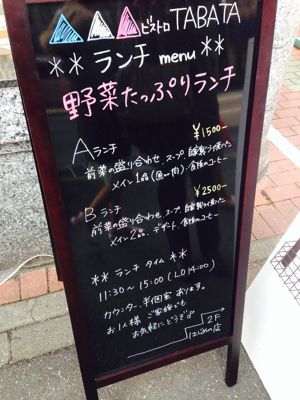 ビストロ TABATA
** ランチ menu **
野菜たっぷりランチ
Aランチ ¥1500-
前菜の盛り合わせ、スープ、自家製フォカッパン
メイン1品(魚or肉)/食後のコーヒー
Bランチ ¥2500-
前菜の盛り合わせ、スープ、自家製フォカッパン
メイン2品、デザート、食後のコーヒー
** ランチ タイム **
11:30 ~ 15:00 (LO 14:00)
カウンター、半個室 あります。
お1人様 ご家族でも
お気軽にどうぞ♪
2F